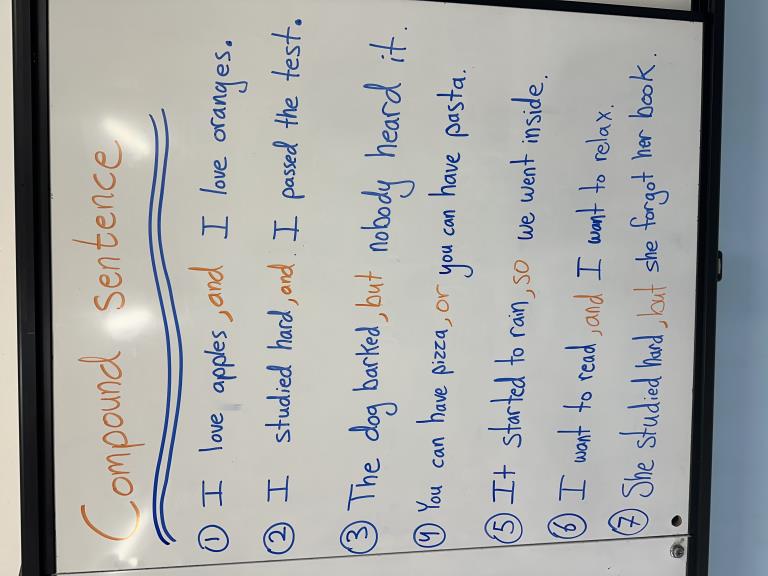 Compound sentence
① I love apples, and I love oranges.
② I studied hard, and I passed the test.
③ The dog barked, but nobody heard it.
④ You can have pizza, or you can have pasta.
⑤ It started to rain, so we went inside.
⑥ I want to read, and I want to relax.
⑦ She studied hard, but she forgot her book.